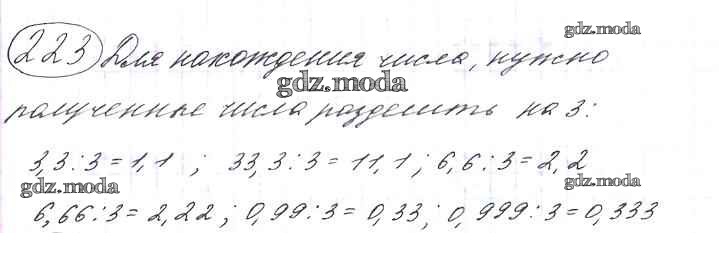 gdz.moda
223 Для нахождения числа, нужно
gdz.moda
полученные числа разделить на 3:
3,3:3=1,1 ; 33,3:3=11,1 ; 6,6:3=2,2
gdz.moda gdz.moda
6,66:3=2,22 ; 0,99:3=0,33 ; 0,999:3=0,333